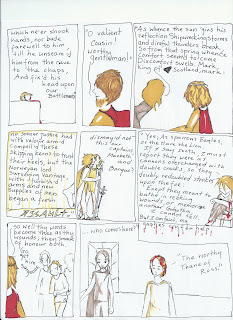 which never shook
hands, nor bade
farewell to him
Till he unseam'd
him from the nave
to the chaps,
And fix'd his
head upon
our
Battlements
"O valiant
Cousin!
worthy
gentleman!"
"As whence the sun 'gins his
reflection Shipwrecking storms
and direful thunders break
So from that spring whence
Comfort seem'd to come
Discomfort swells. Mark
King of Scotland, mark:
No sooner justice had
with valour arm'd
Compell'd these
skipping kerns to trust
their heels, but the
Norweyan lord
Surveying vantage,
with furbish'd
arms and new
supplies of men
began a fresh
dismay'd not
this our
captains
Macbeth
and
Banquo?
"Yes; As sparrows Eagles,
or the Hare the lion.
If I say sooth, I must
report they were as
cannons overcharged with
double cracks, so they
doubly redoubled strokes
upon the foe.
Except they meant to
bathe in reeking
wounds, or memorize
another Golgotha,
I cannot tell.
But I am faint, my
gashes cry for help
So well thy words
become thee as thy
wounds; they smack
of honour both.
who comes here?
"The worthy
Thane of
Ross."